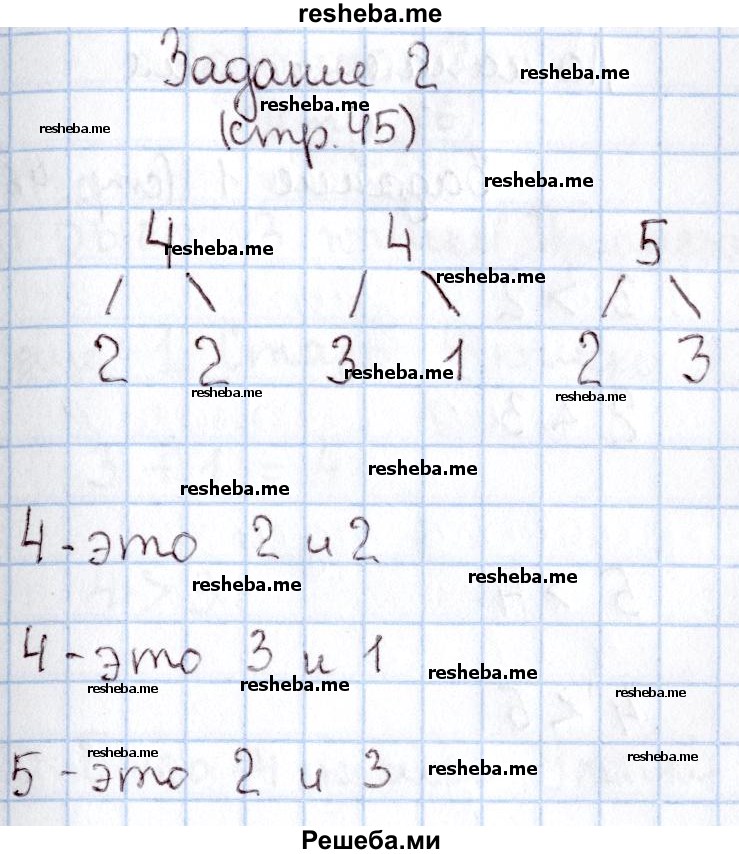 resheba.me
Задание 2 resheba.me
resheba.me
resheba.me
(стр. 45)
resheba.me
4 4 5
resheba.me
resheba.me
2 2 3 1 2 3
resheba.me
resheba.me
resheba.me
resheba.me
resheba.me
4 - это 2 и 2
resheba.me
resheba.me
4 - это 3 и 1
resheba.me
resheba.me
resheba.me
resheba.me
resheba.me
resheba.me
5 - это 2 и 3 resheba.me
Решеба.ми